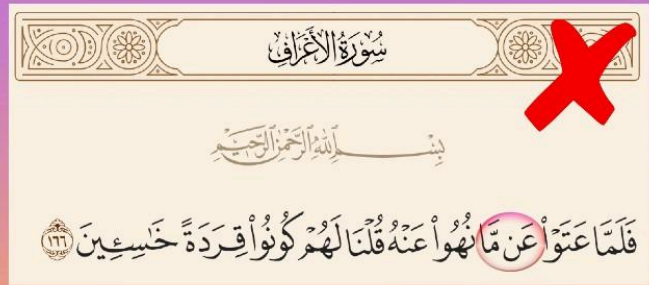 سُورَةُ الأَعْرَافِ
بِسْمِ ٱللَّهِ ٱلرَّحْمَٰنِ ٱلرَّحِيمِ
فَلَمَّا عَتَوْا۟ عَن مَّا نُهُوا۟ عَنْهُ قُلْنَا لَهُمْ كُونُوا۟ قِرَدَةً خَٰسِـِٔينَ ١٦٦